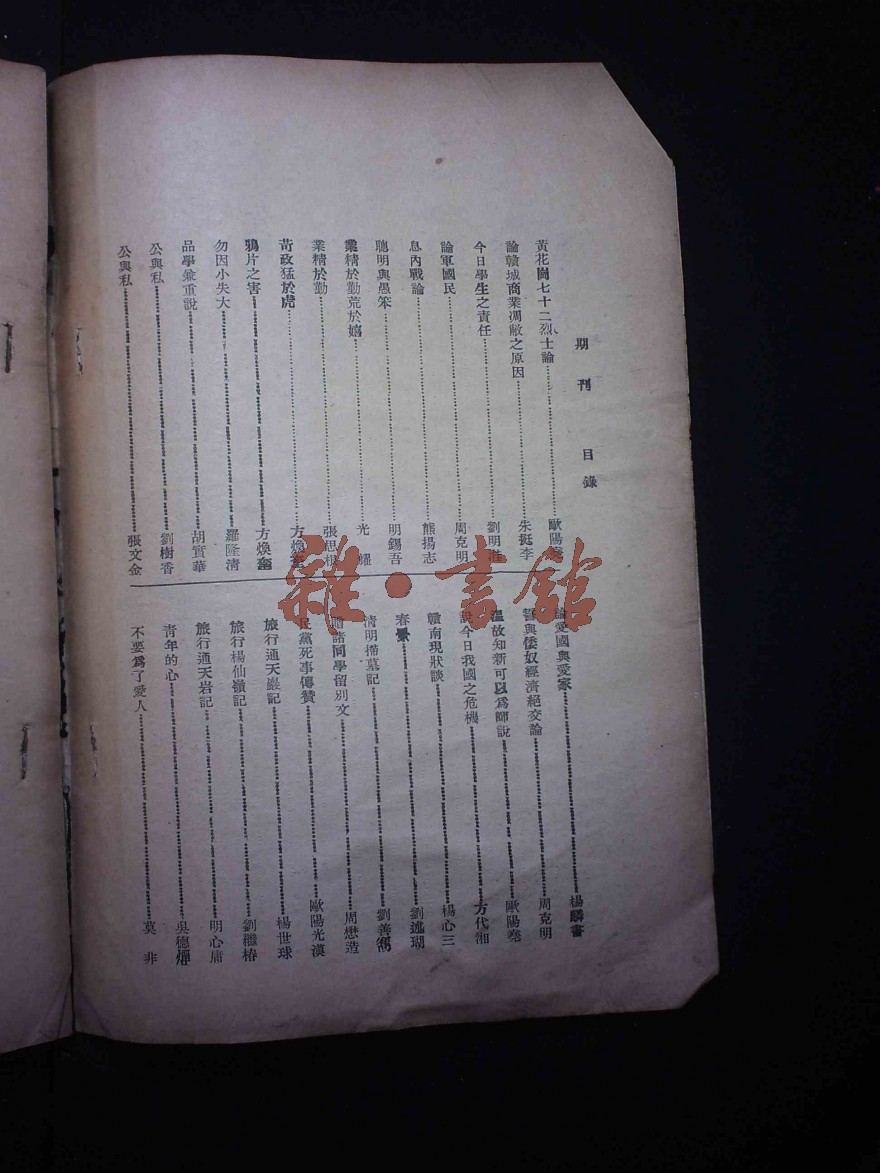 期刊目錄
黃花崗七十二烈士論 歐陽堯
論贛城商業凋敝之原因 朱挺李
今日學生之責任 劉明
論軍國民 周克明
息內戰論 熊揚志
聰明與愚笨 明錫吾
業精於勤荒於嬉 光耀
業精於勤 張思
苛政猛於虎 方煥
鴉片之害 方煥奎
勿因小失大 羅隆清
品學兼重說 胡實華
公與私 劉樹香
公與私 張文金
論愛國與愛家 楊麟書
暫與倭奴經濟絕交論 周克明
溫故知新可以爲師說 歐陽堯
說今日我國之危機 方代湘
贛南現狀談 楊心三
春景 劉述瑚
清明掃墓記 劉善
贈諸同學留別文 周懋造
民黨死事傳贊 歐陽光漢
旅行通天巖記 楊世球
旅行楊仙嶺記 劉繼椿
旅行通天岩記 明心庸
青年的心 吳德燀
不要爲了愛人 莫非
雜·書館